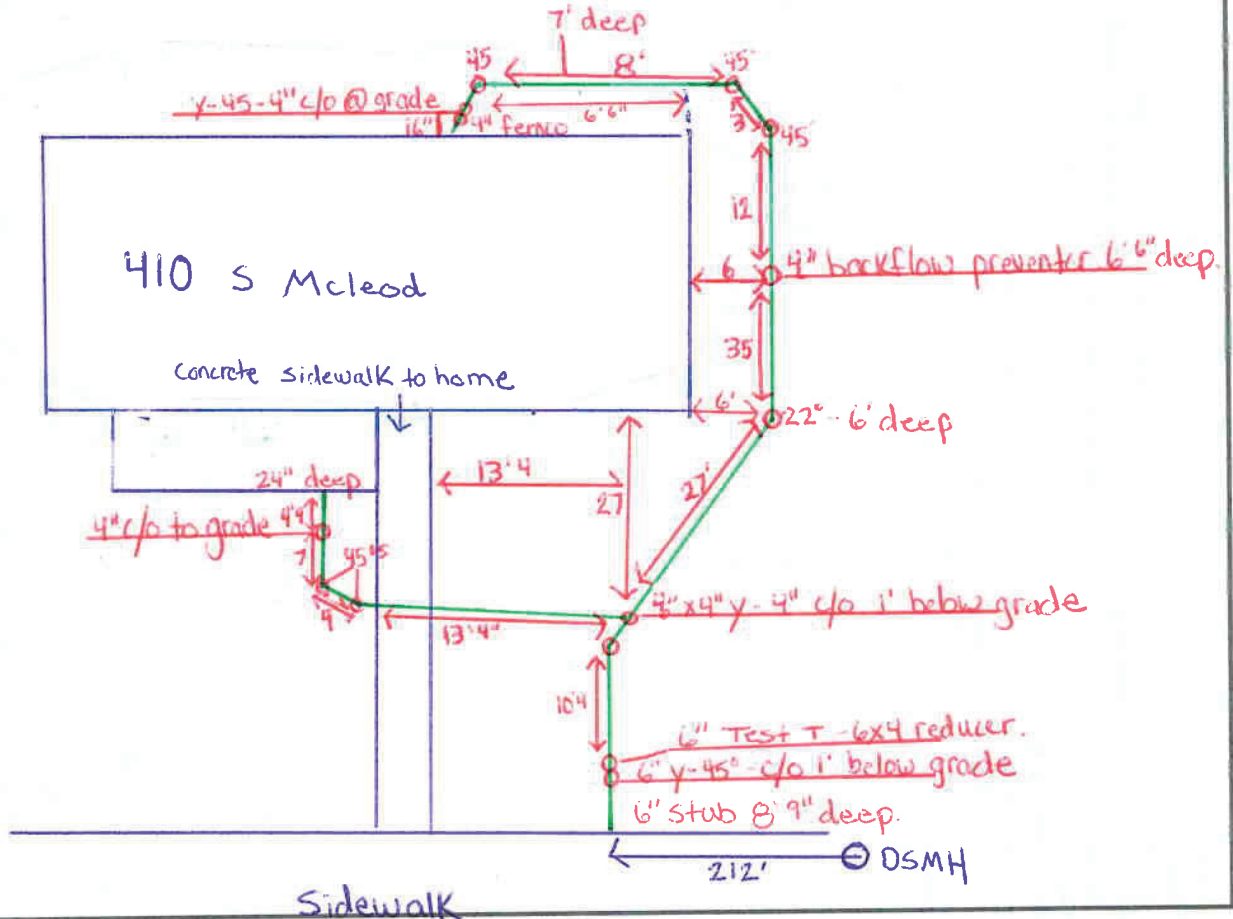 7' deep
45
8'
45
y-45-4" c/o @ grade
16"
4" fernco
6'6"
3
45
12
410 S Mcleod
6
4" backflow preventer 6'6" deep.
35
concrete sidewalk to home
6'
22° - 6' deep
13'4
27
27'
24" deep
4'4
4" c/o to grade
7
45°s
4
4"x4" y-4" c/o 1' below grade
13'4"
10'4
6" Test T -6x4 reducer.
6" y-45°-c/o 1' below grade
6" Stub 8'9" deep.
212'
DSMH
Sidewalk